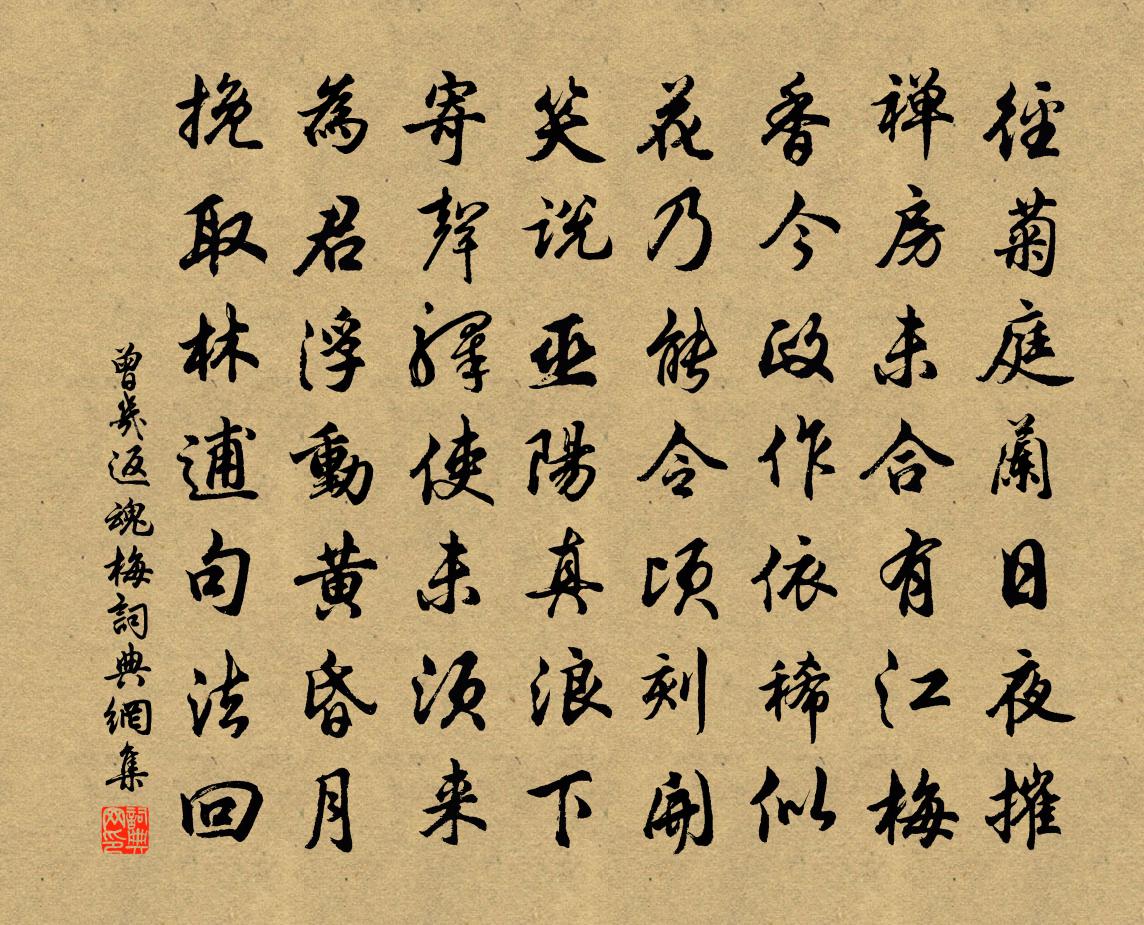 徑菊庭蘭日夜摧
禅房未合有江梅
香今政作依稀似
花乃能令頃刻開
笑説巫陽真浪下
寄聲驛使未須来
為君浮動黄昏月
挽取林逋句法回
曾幾返魂梅詞典網集
詞典網印